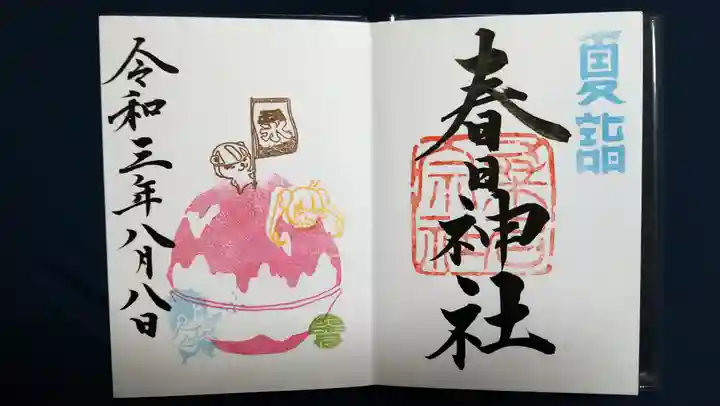 夏詣
春日神社
氷
令和三年八月八日